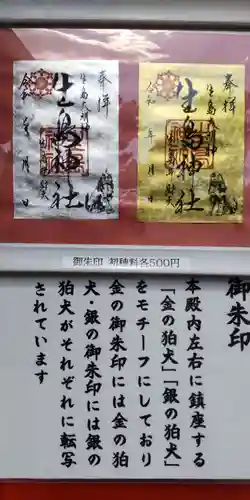 奉拝
生島大明神
生島神社
令和 年 月 日
奉拝
生島大明神
生島神社
令和 年 月 日
御朱印 初穂料各500円
御朱印
本殿内左右に鎮座する
「金の狛犬」「銀の狛犬」
をモチーフにしており
金の御朱印には金の狛
犬・銀の御朱印には銀の
狛犬がそれぞれに転写
されています